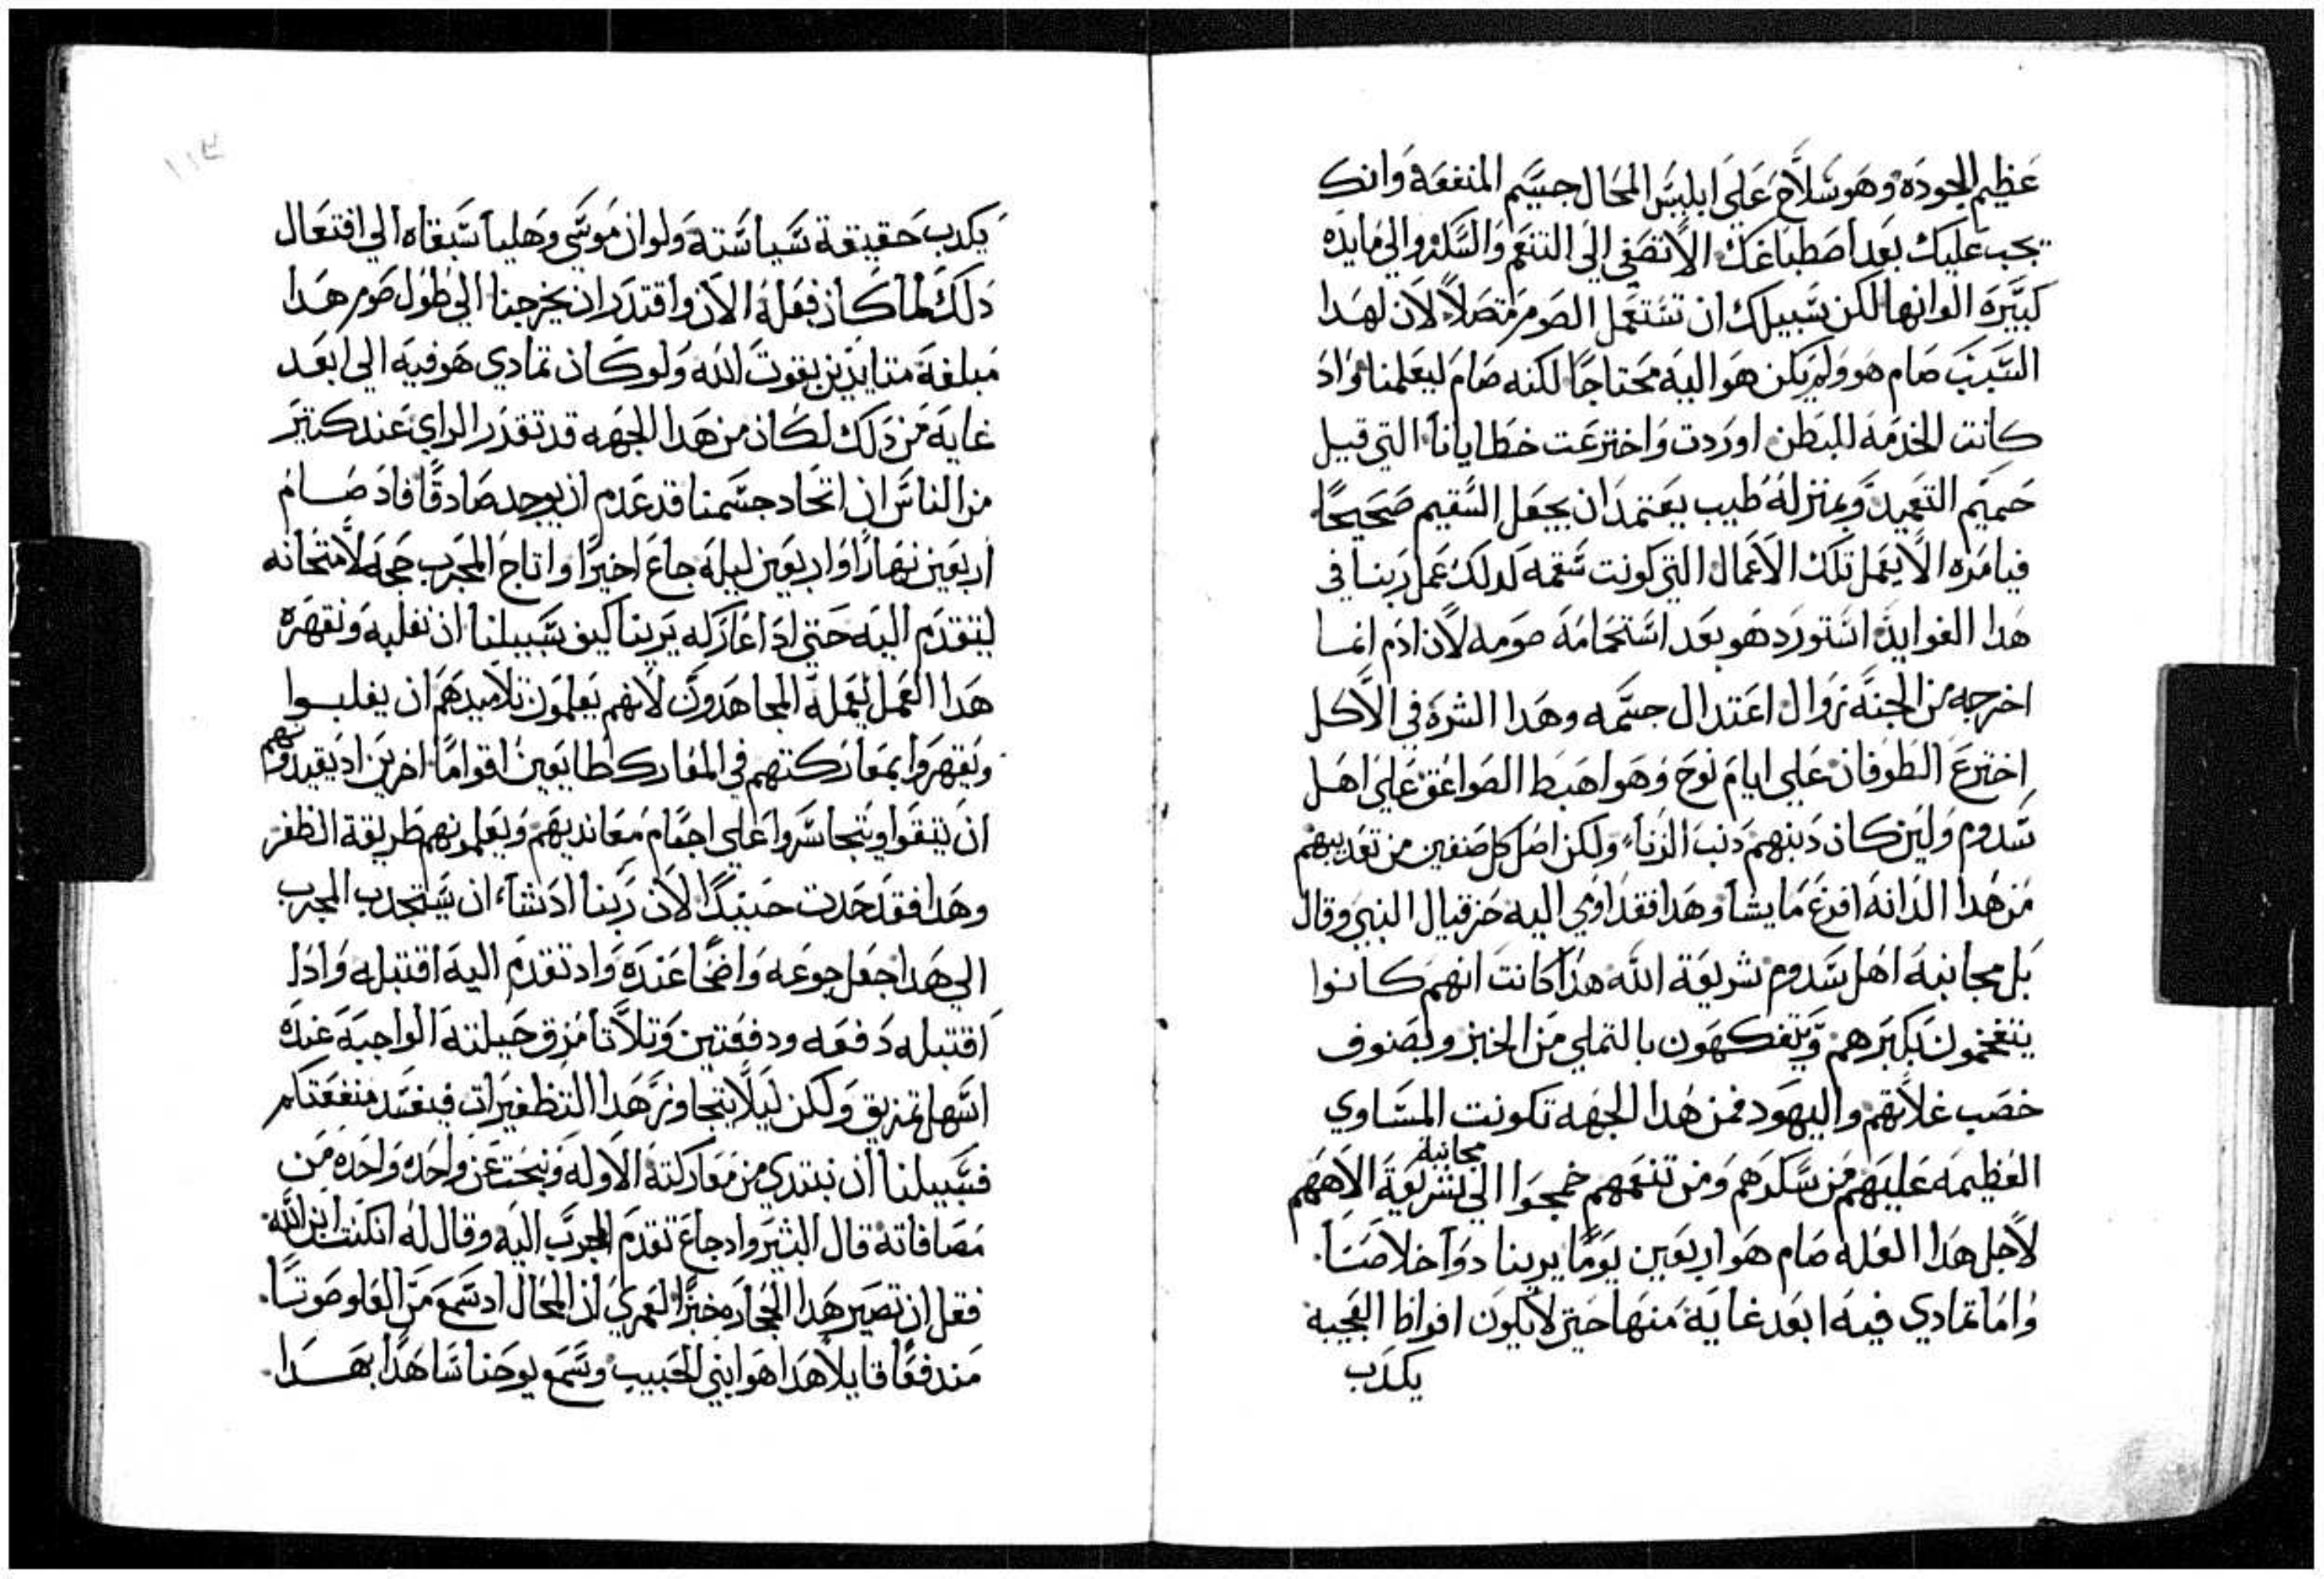 عظيم الجوده وهو سلاح على ابليس المحال جسيم المنفعة وانك
يجب عليك بعد اصطباغك الا تصغي الى التنعم والسكر والي مايده
كبيرة الوانها لكن سبيلك ان تستعمل الصوم متصلا لان لهدا
السبب صام هو ولم يكن هو اليه محتاجا لكنه صام ليعلمنا واد
كانت الخدمه للبطن اوردت واخترعت خطايانا التي قبل
حميم التعميد وبمنزلة طبيب يعتمد ان يجعل السقيم صحيحا
فيامره الا يعمل تلك الاعمال التي كونت سقمه لدلك عمل ربنا في
هدا الفوايد استورد هو بعد استحمامه صومه لان ادم انما
اخرجه من الجنة زوال اعتدال جسمه وهدا الشره في الاكل
اخترع الطوفان على ايام نوح وهو اهبط الصواعق على اهل
سدوم ولين كان دنبهم دنب الزنا ولكن اصل كل صنفين من تعديبهم
من هدا الدانه افرع ما يشا وهدا فقد اومي اليه حزقيال النبي وقال
بل مجانبة اهل سدوم شريعة الله هدا كانت انهم كانوا
يتفخمون بكبرهم ويتفكهون بالتملي من الخبز وبصنوف
خصب غلاتهم واليهود فمن هدا الجهه تكونت المساوي
العظيمه عليهم من سكرهم ومن تنعمهم خمجوا الي مجانبة شريعة الاههم
لاجل هدا العله صام هو اربعين يوما يرينا دوا خلاصنا
واما تمادي فيه ابعد غاية منها حتي لا يكون افراط العجيبه
يكدب
١١٤
يكدب حقيقة سياسته ولو ان موسي وهليا سبقاه الي افتعال
دلك لما كان فعله الان واقتدر ان يخرجنا الي طول صوم هدا
مبلغة متايدين بقوت الله ولو كان تمادي هو فيه الي ابعد
غاية من دلك لكان من هدا الجهه قد تقدر الراي عند كتير
من الناس ان اتحاد جسمنا قد عدم ان يوجد صادقا فاد صام
اربعين نهارا واربعين ليلة جاع اخيرا واتاح المجرب حجة لامتحانه
ليتقدم اليه حتي ادا عاركه يرينا كيف سبيلنا ان نغلبه ونقهره
هدا العمل يعمله المجاهدون لانهم يعلمون تلاميدهم ان يغلبوا
ويقهروا بمعاركتهم في المعارك طايعين اقواما اخرين اد يفيدونهم
ان يتقوا ويتجاسروا على اجسام معانديهم ويعلمونهم طريقة الظفر
وهدا فقد حدت حينيدا لان ربنا اد شا ان يستجدب المجرب
الي هدا جعل جوعه واضحا عنده واد تقدم اليه اقتبله واد
اقتبله دفعه ودفعتين وتلاتا مزق حيلته الواجبه عنده
اسهل تمزيق ولكن ليلا يتجاوز هدا التظفيرات فنفسد منفعتكم
فسبيلنا ان نبتدي من معاركته الاوله ونبحت عن واحده واحده من
مصافاته قال البشير واد جاع تقدم المجرب اليه وقال له ان كنت ابن الله
فقل ان تصير هدا الحجاره خبزا لعمري ان المحال اد سمع من العلو صوتا
مندفعا قايلا هدا هو ابني الحبيب وسمع يوحنا شاهدا بهدا